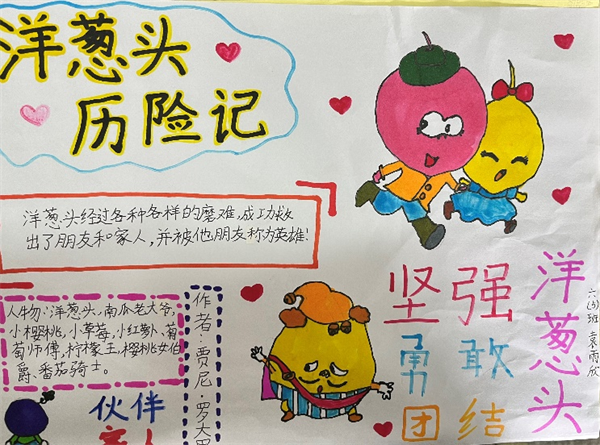 洋葱头
历险记
洋葱头经过各种各样的磨难,成功救
出了朋友和家人,并被他朋友称为英雄!
人物:洋葱头、南瓜老大爷,
小樱桃,小草莓,小红萝卜,葡
萄师傅,柠檬王,樱桃女伯
爵、番茄骑士。
作者:贾尼·罗大里
伙伴
家人
坚强
勇敢
团结
洋葱头
六(3)班 袁雨欣